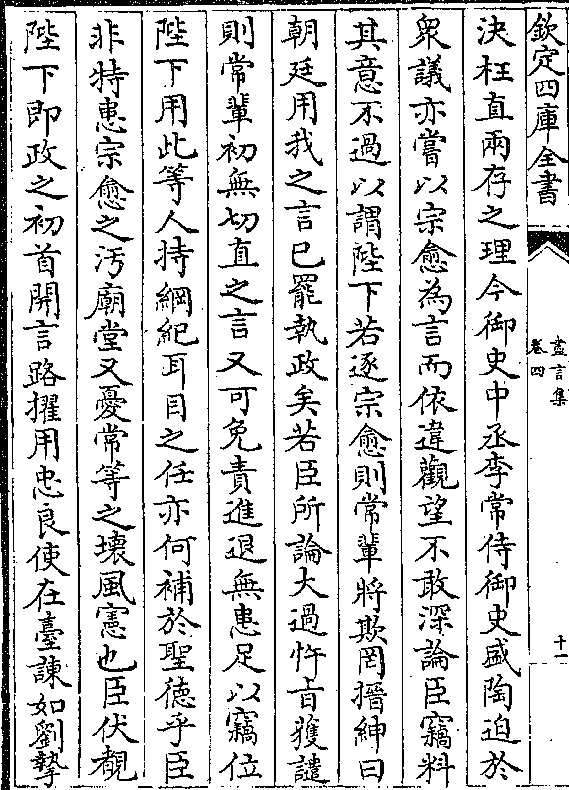 欽定四庫全書
盡言集
卷四
十一
決枉直兩存之理今御史中丞李常侍御史盛陶迫於
衆議亦嘗以宗愈為言而依違觀望不敢深論臣竊料
其意不過以謂陛下若逐宗愈則常輩將欺罔搢紳曰
朝廷用我之言已罷執政矣若臣所論大過忤旨獲譴
則常輩初無切直之言又可免責進退無患足以竊位
陛下用此等人持綱紀耳目之任亦何補於聖徳乎臣
非特患宗愈之汚廟堂又憂常等之壊風憲也臣伏覩
陛下即政之初首開言路擢用忠良使在臺諫如劉摯